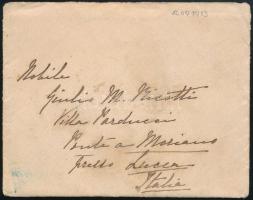 Nobile
Giulio M. Nicotti
Villa Parducci
Ponte a Moriano
presso Lucca
Italia